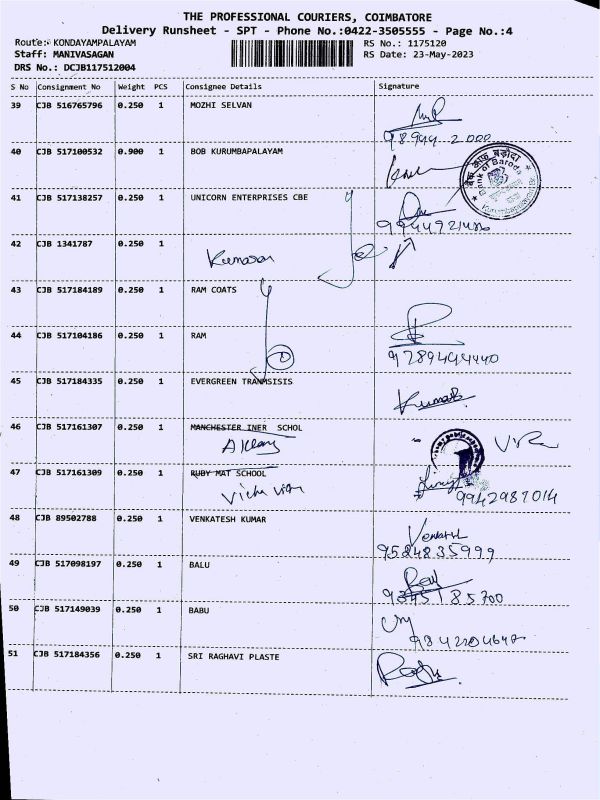 THE PROFESSIONAL COURIERS, COIMBATORE
Delivery Runsheet - SPT - Phone No.:0422-3505555 - Page No.:4
Route:- KONDAYAMPALAYAM
RS No.: 1175120
Staff: MANIVASAGAN
RS Date: 23-May-2023
DRS No.: DCJB117512004
S No Consignment No Weight PCS Consignee Details Signature
39 CJB 516765796 0.250 1 MOZHI SELVAN
40 CJB 517100532 0.900 1 BOB KURUMBAPALAYAM
बैंक ऑफ़ बड़ौदा
Bank of Baroda
41 CJB 517138257 0.250 1 UNICORN ENTERPRISES CBE
42 CJB 1341787 0.250 1
Kumaran
43 CJB 517184189 0.250 1 RAM COATS
44 CJB 517104186 0.250 1 RAM
9789494440
45 CJB 517184335 0.250 1 EVERGREEN TRANMSISIS
Kumar
46 CJB 517161307 0.250 1 MANCHESTER INER SCHOL
47 CJB 517161309 0.250 1 RUBY MAT SCHOOL
9942987014
48 CJB 89502788 0.250 1 VENKATESH KUMAR
Venkatesh
9524835999
49 CJB 517098197 0.250 1 BALU
9345185700
50 CJB 517149039 0.250 1 BABU
9842204647
51 CJB 517184356 0.250 1 SRI RAGHAVI PLASTE